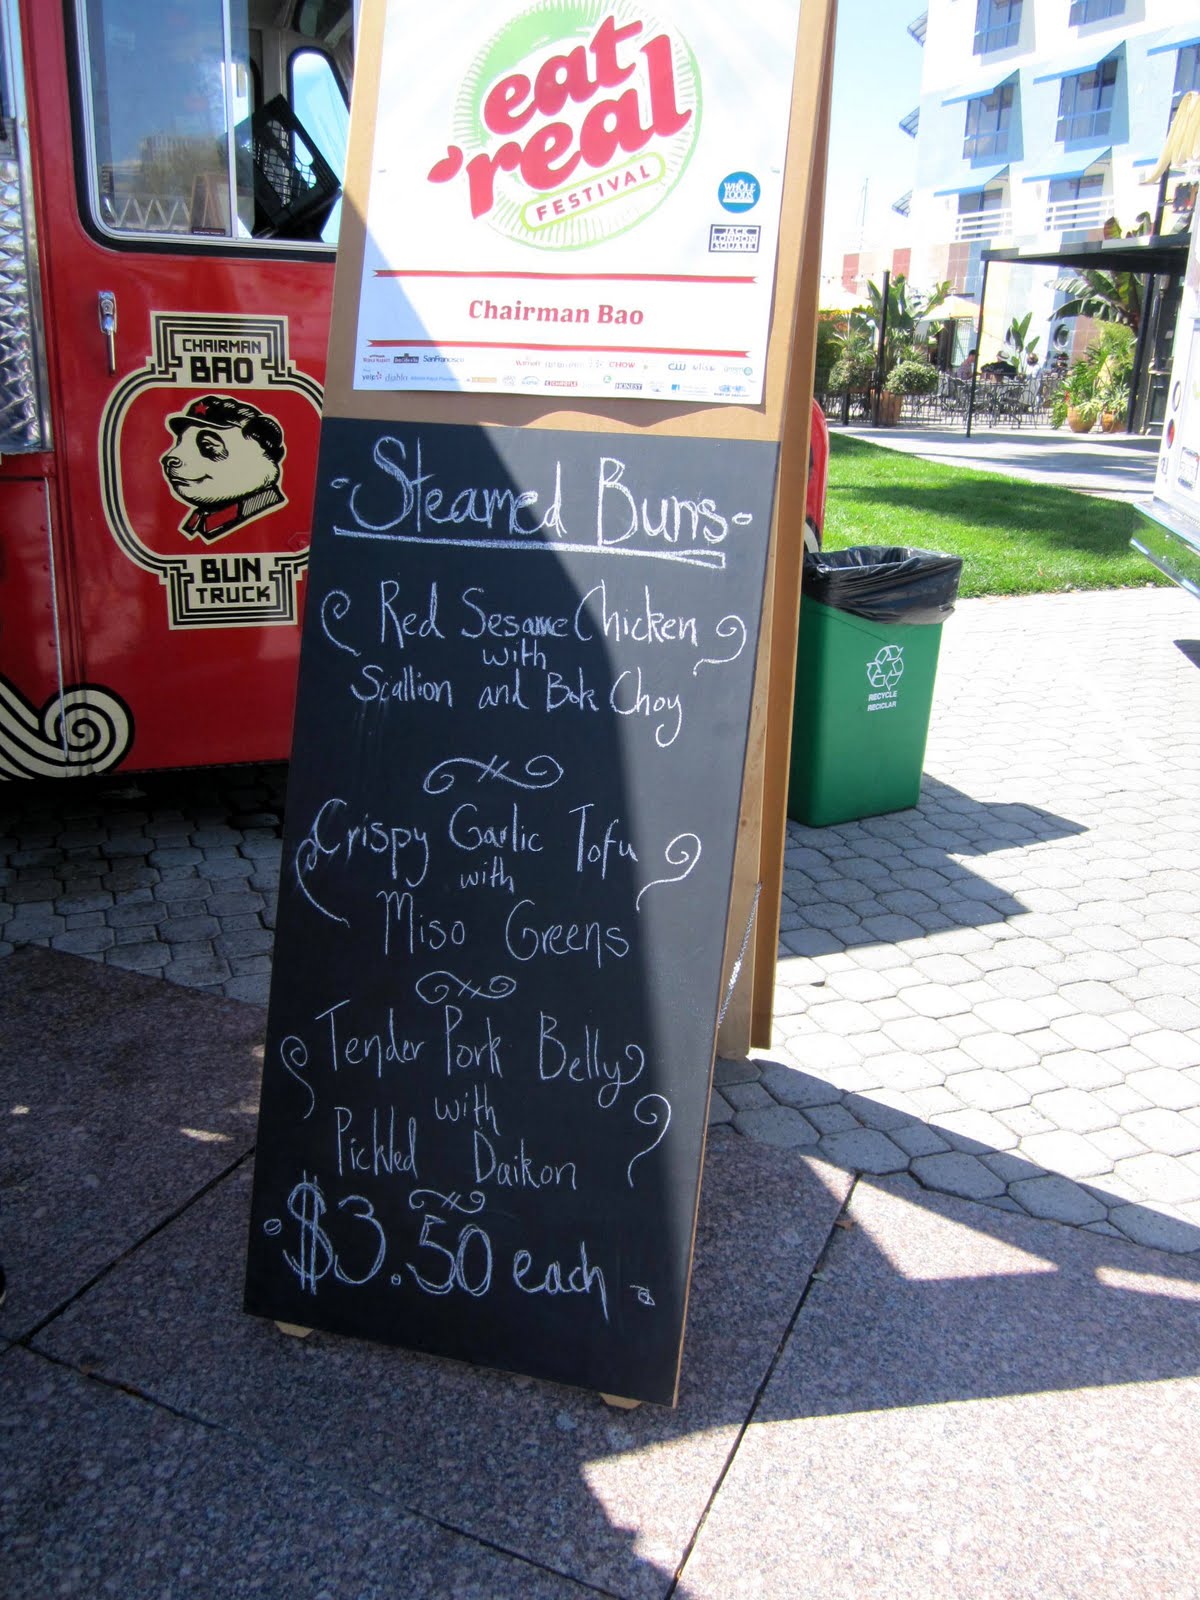 eat
real
FESTIVAL
WHOLE
FOODS
JACK
LONDON
SQUARE
Chairman Bao
SanFrancisco
yelp
diablo
CHOW
CHAIRMAN
BAO
BUN
TRUCK
-Steamed Buns-
Red Sesame Chicken
with
Scallion and Bok Choy
Crispy Garlic Tofu
with
Miso Greens
Tender Pork Belly
with
Pickled Daikon
$3.50 each
RECYCLE
RECICLAR